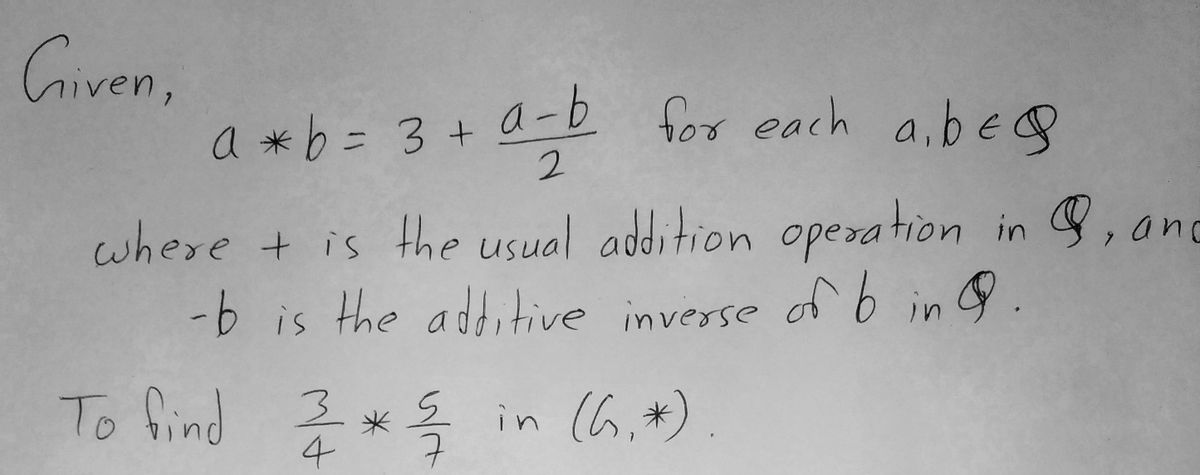 Given,
a * b = 3 + \frac{a-b}{2} for each a, b ∈ ℚ
where + is the usual addition operation in ℚ, and
-b is the additive inverse of b in ℚ.
To find \frac{3}{4} * \frac{5}{7} in (G, *).